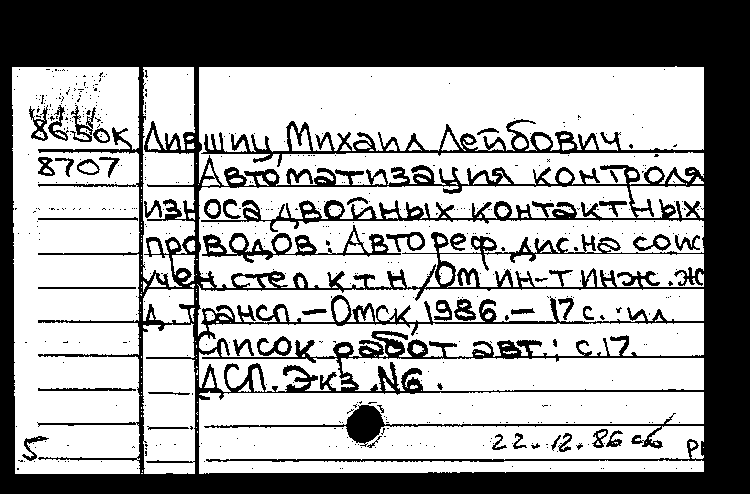 86 50к Лившиц, Михаил Лейбович.
8707 Автоматизация контроля
износа двойных контактных
проводов: Автореф. дис. на соис
учен. степ. к.т.н / Ом ин-т инж. ж
д. трансп. — Омск, 1986. — 17 с. : ил.
Список работ авт.: с.17.
ДСП. Экз. №6.
5 22.12.86